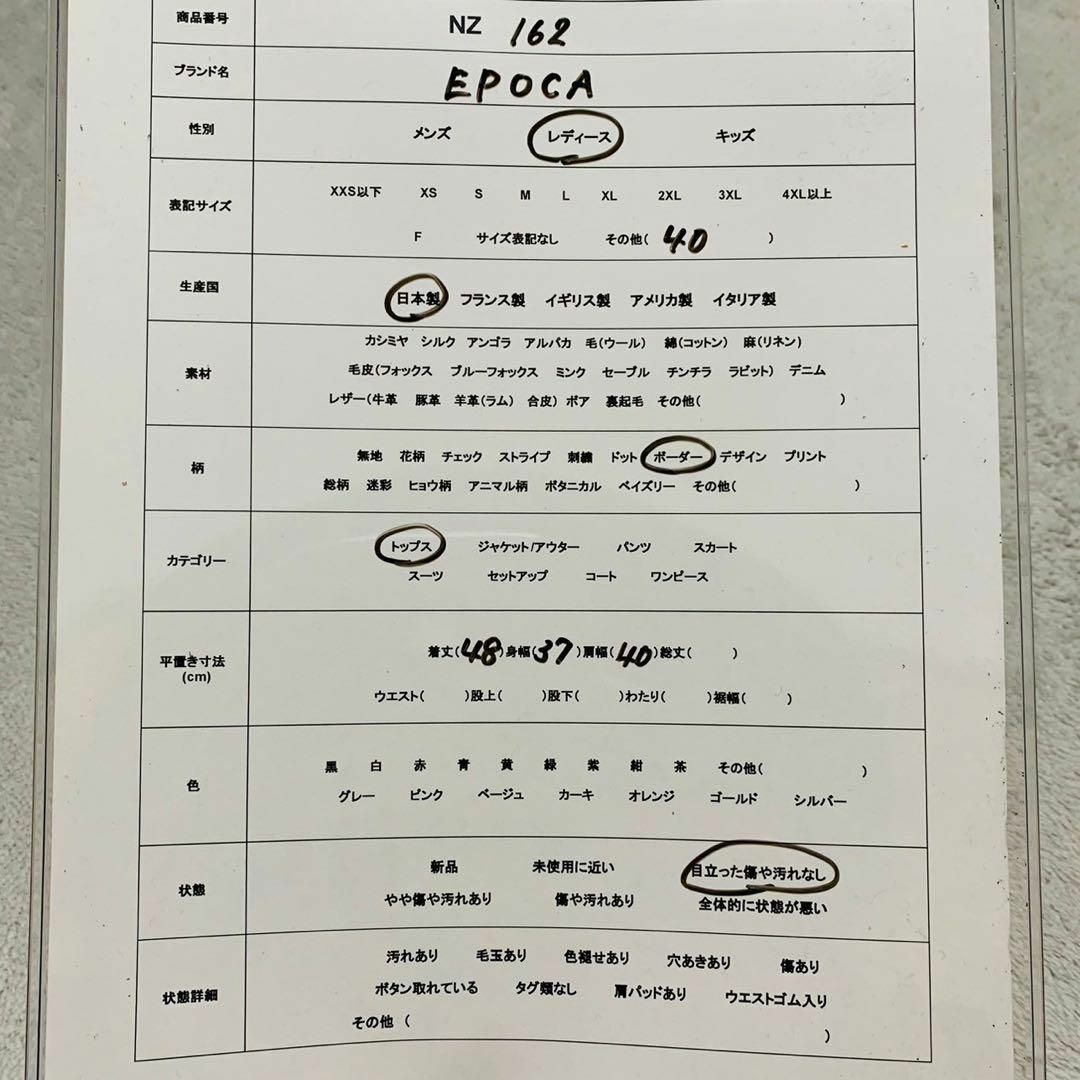 商品番号 NZ 162
ブランド名 EPOCA
性別 メンズ レディース キッズ
XXS以下 XS S M L XL 2XL 3XL 4XL以上
表記サイズ
F サイズ表記なし その他( 40 )
生産国 日本製 フランス製 イギリス製 アメリカ製 イタリア製
カシミヤ シルク アンゴラ アルパカ 毛(ウール) 綿(コットン) 麻(リネン)
素材 毛皮(フォックス ブルーフォックス ミンク セーブル チンチラ ラビット) デニム
レザー(牛革 豚革 羊革(ラム) 合皮) ボア 裏起毛 その他( )
柄 無地 花柄 チェック ストライプ 刺繍 ドット ボーダー デザイン プリント
総柄 迷彩 ヒョウ柄 アニマル柄 ボタニカル ペイズリー その他( )
トップス ジャケット/アウター パンツ スカート
カテゴリー
スーツ セットアップ コート ワンピース
平置き寸法 着丈(48)身幅(37)肩幅(40)総丈( )
(cm)
ウエスト( )股上( )股下( )わたり( )裾幅( )
黒 白 赤 青 黄 緑 紫 紺 茶 その他( )
色
グレー ピンク ベージュ カーキ オレンジ ゴールド シルバー
新品 未使用に近い 目立った傷や汚れなし
状態
やや傷や汚れあり 傷や汚れあり 全体的に状態が悪い
汚れあり 毛玉あり 色褪せあり 穴あきあり 傷あり
状態詳細 ボタン取れている タグ類なし 肩パッドあり ウエストゴム入り
その他 ( )